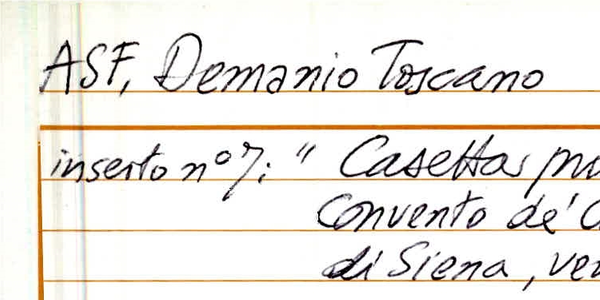 ASF, Demanio Toscano
inserto n° 7: " Casetta
Convento de'
di Siena,